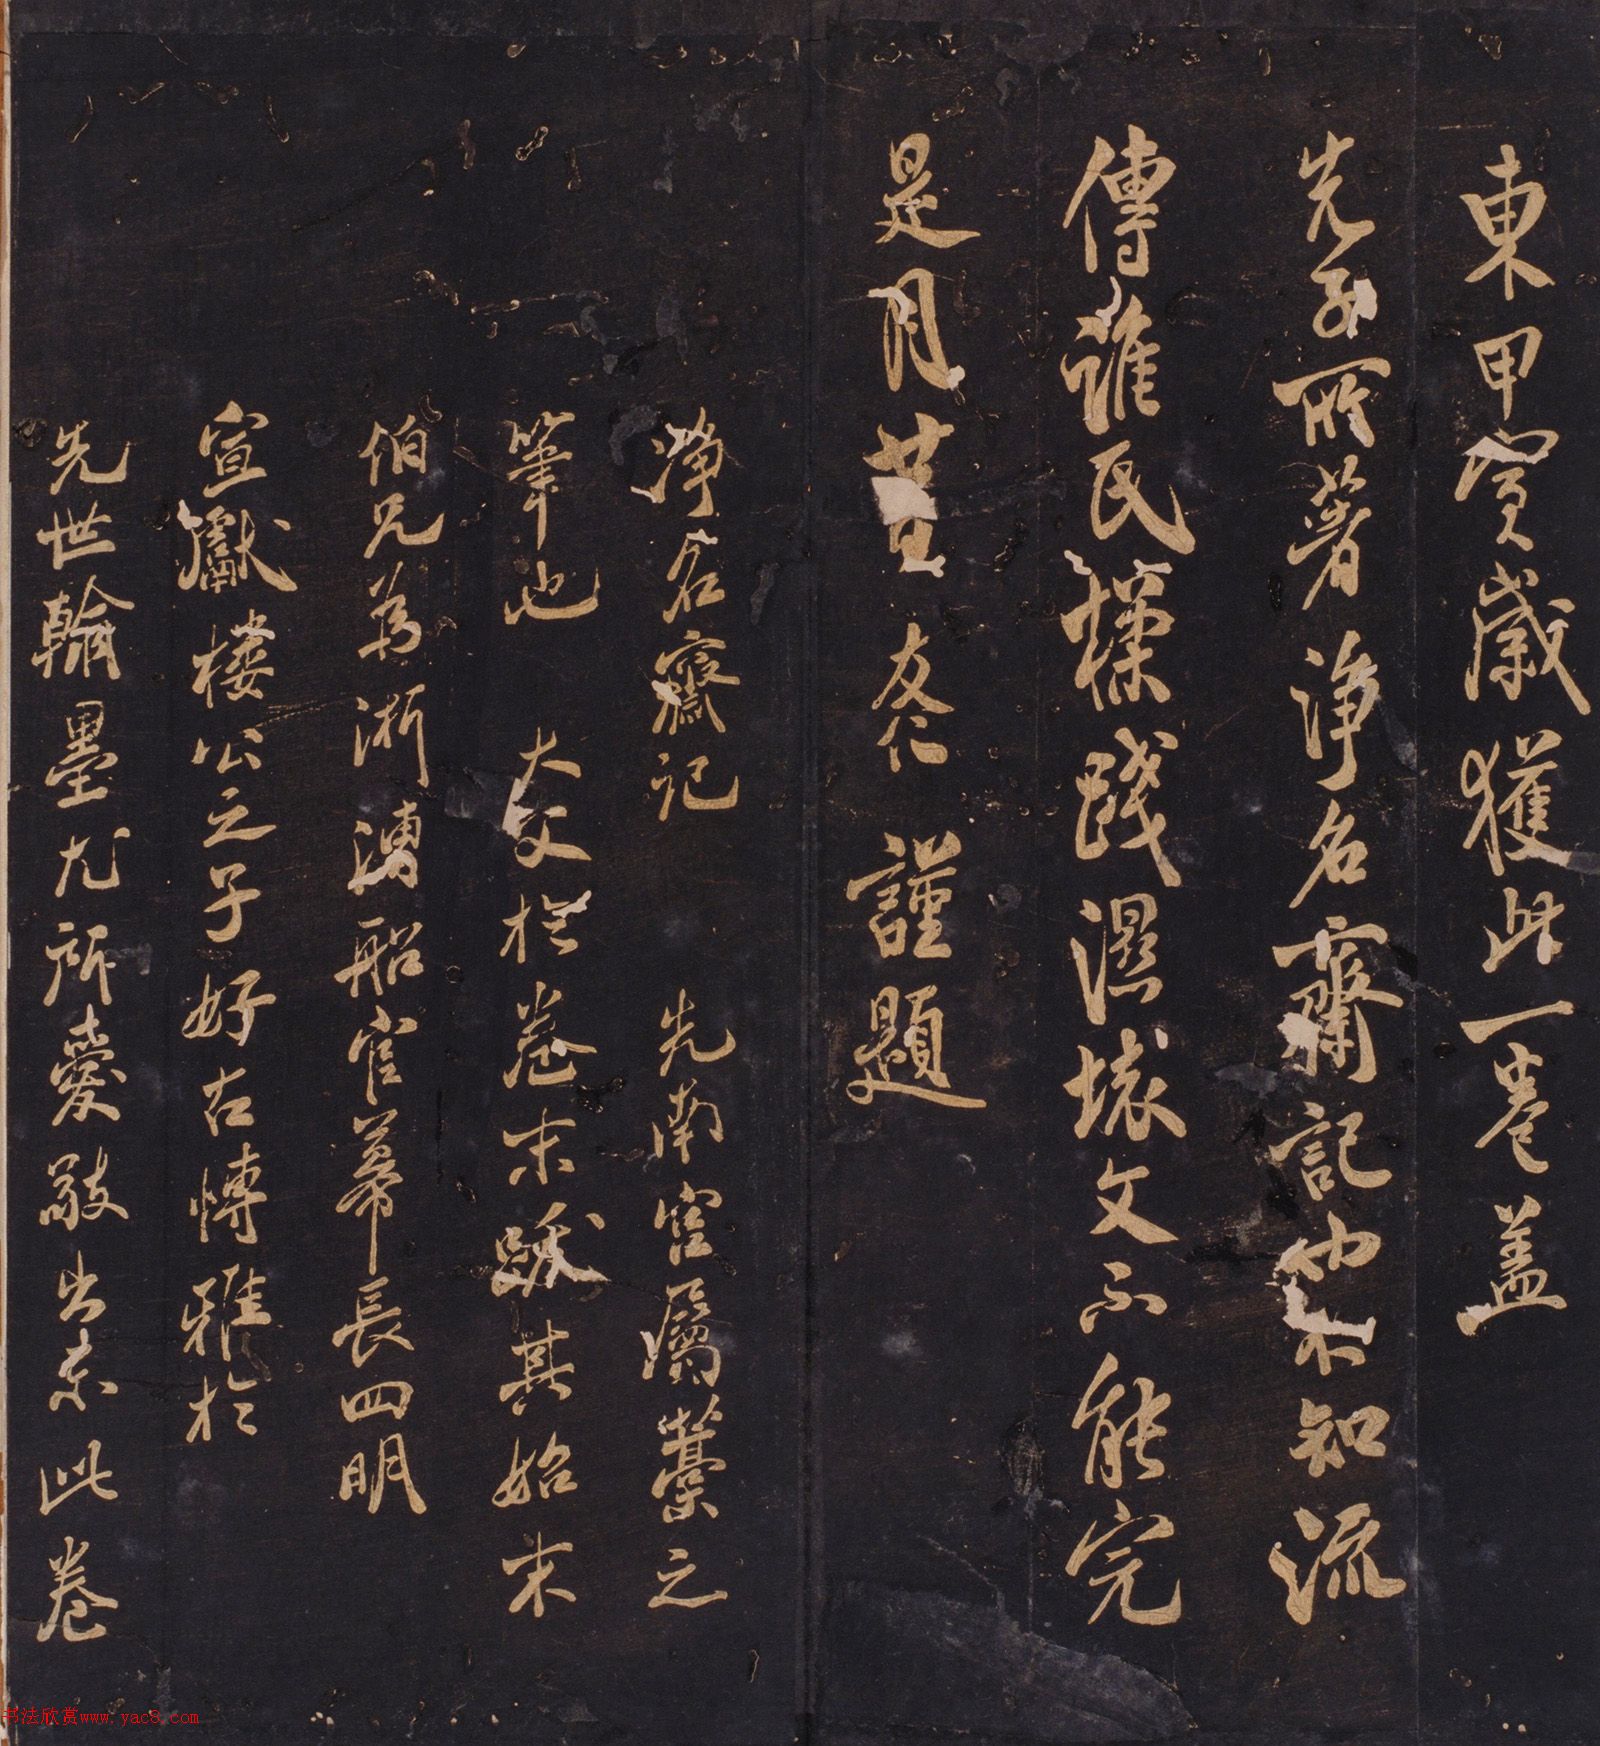 東甲寅歲獲此一卷蓋
先子所著淨名齋記也不知流
傳誰氏㯷踐濕壞文不能完
是月廿日友仁謹題
淨名齋記 先南宮屬藁之
筆也 大父於卷末跋其始末
伯兄為浙漕船官幕長四明
宣獻樓公之子好古博雅於
先世翰墨尤所愛敬出示此卷
书法欣赏www.yac8.com